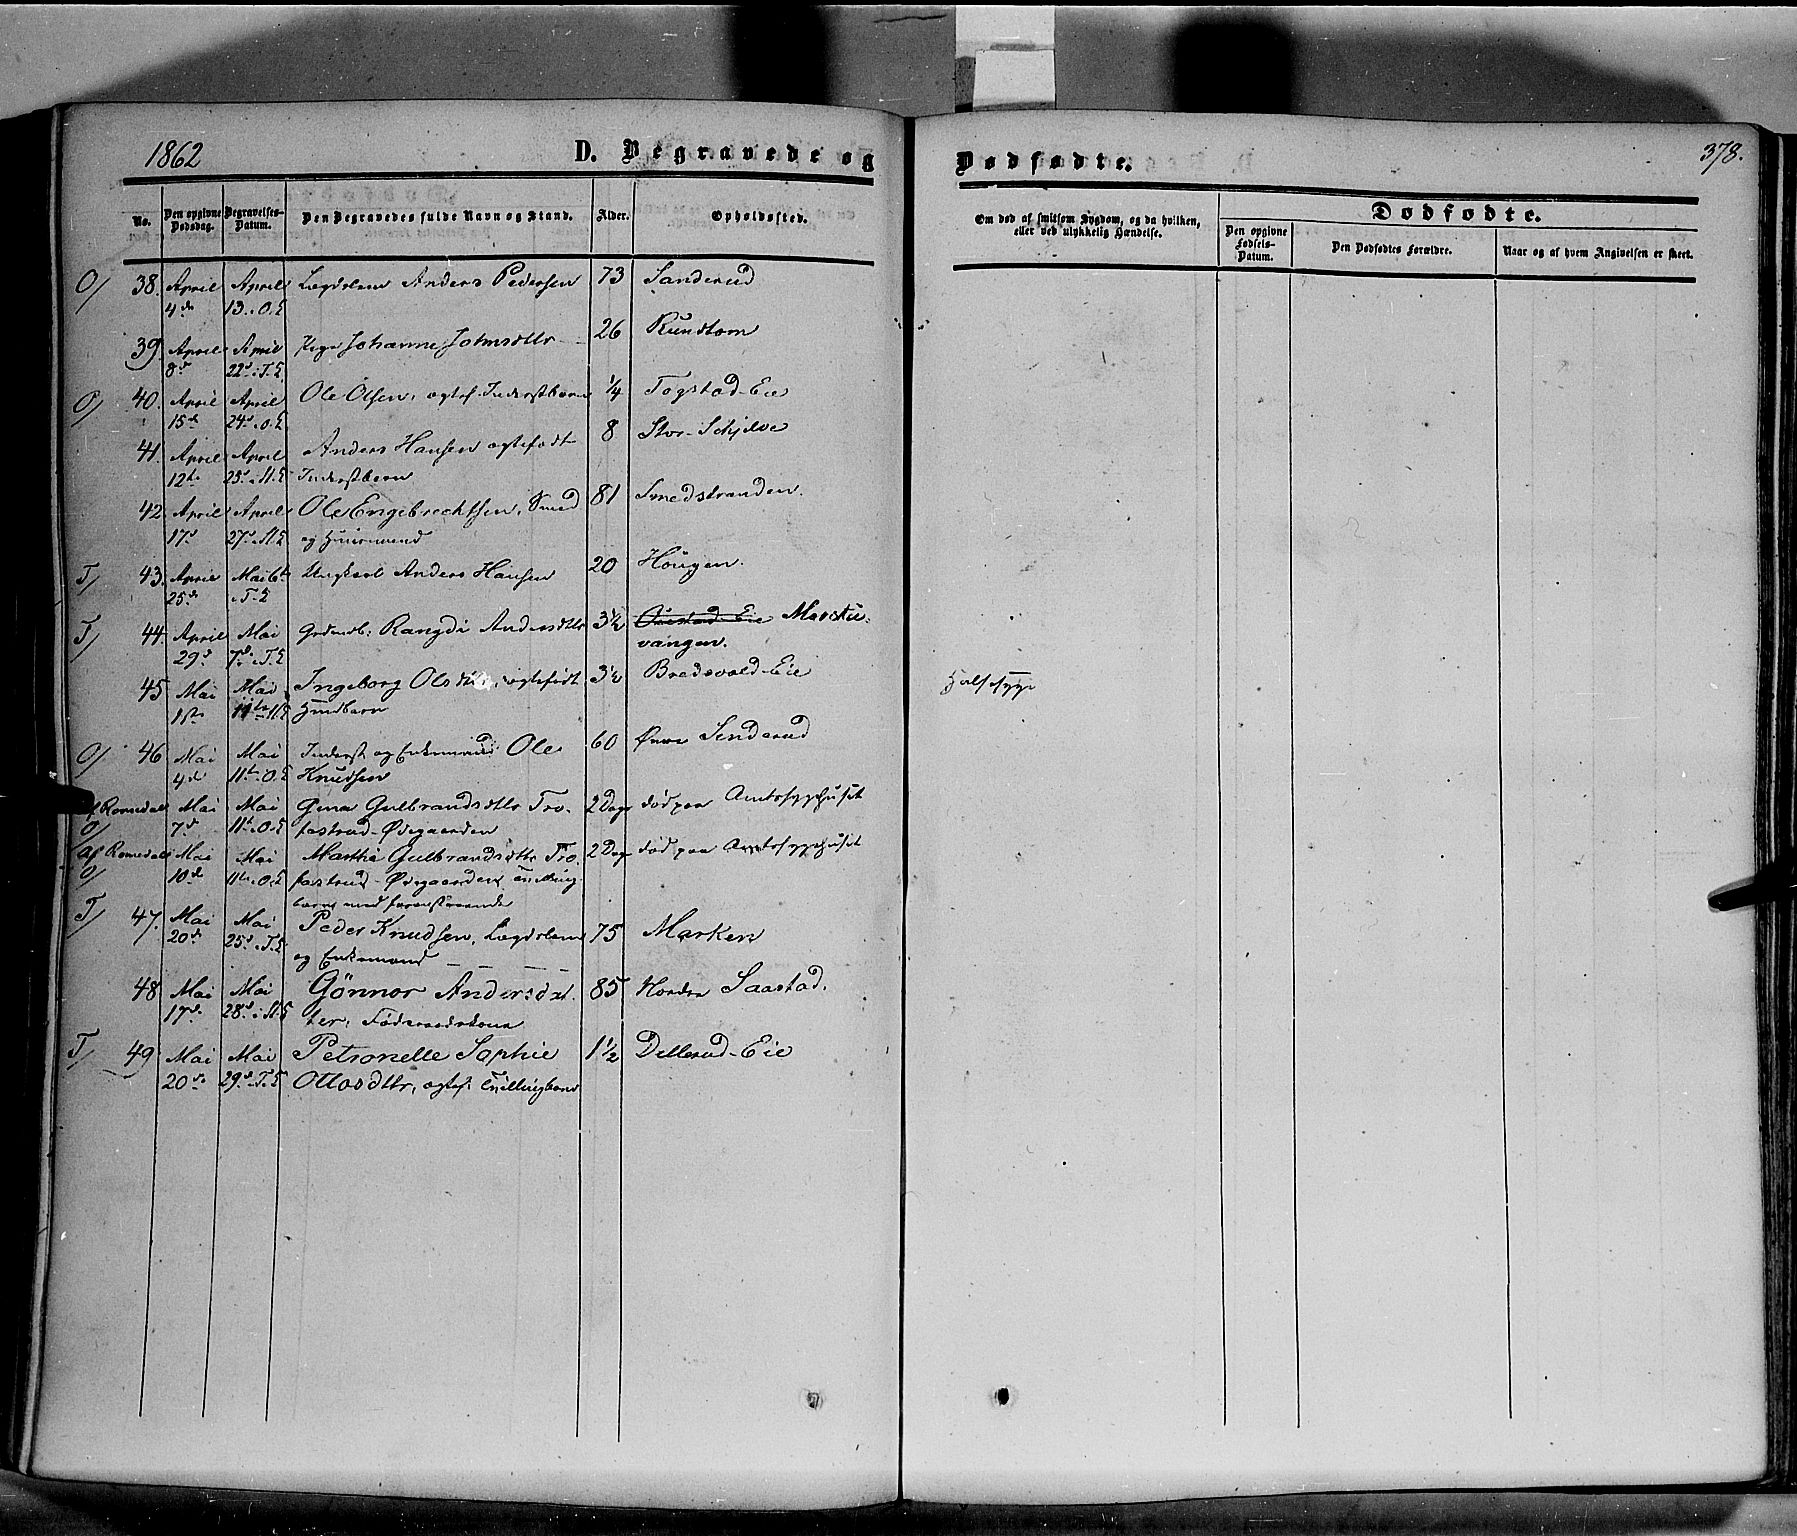 1862
D. Begravede og
Dødfødte.
378.
No.
Den opgivne Dødsdag.
Begravelses-Datum.
Den Begravedes fulde Navn og Stand.
Alder.
Opholdssted.
Om død af smitsom Sygdom, og da hvilken, eller ved ulykkelig Hændelse.
Dødfødte.
Den opgivne Fødsels-Datum.
Den Dødfødtes Forældre.
Naar og af hvem Angivelsen er skeet.
O/ 38. April April Lægdslem Anders Pedersen 73 Sanderud
4de 13. O.E
39. April April Pige Johanne Johnsdttr 26 Rundtom
8d 22d i T.E
O/ 40. April April Ole Olsen, ægtef. Inderstbarn 1/4 Togstad-Eie
15d 24d O.E
41. April April Anders Hansen ægtefødt 8 Stor-Schjelve
12te 25d i St.E Inderstbarn
42. April April Ole Engebrechtsen, Smed 81 Smedstranden.
17d 27d i St.E og Huusmand
T/ 43. April Mai 6te Ungkarl Anders Hansen 20 Hougen.
25de i T.E
T/ 44. April Mai Rangdi Andersdttr 3½ Eie
29d 7de i T.E vangen.
45 Mai Mai Ingeborg Olsdttr, ægtefødt 3½ Bredsvold-Eie Halssyge
1ste 11te St.E Huusbarn
O/ 46 Mai Mai Inderst og Enkemand Ole 60 Øvre Sanderud
4de 11te O.E Knudsen
Af Romedal Mai Mai Gina Gulbrandsdttr Tro- 2 Dage død paa Amtssygehuset
O/ 7de 11te O.E fastrud-Ødegaarden
Af Romedal Mai Mai Marthe Gulbrandsdttr Tro- 2 Dage død paa Amtssygehuset
O/ 10de 11te O.E fastrud-Ødegaarden, Tvilling-
barn med foranstaaende
T/ 47. Mai Mai Peder Knudsen, Lægdslem 75 Marken
20de 25d i T.E og Enkemand
48 Mai Mai Gönnor Andersdat- 85 Nordre Saastad.
17de 28d i St.E ter, Föderaadskone
T/ 49 Mai Mai Petronelle Sophie 1½ Dellerud-Eie
20de 29d T.E Ottosdttr, ægtef. Tvillingbarn